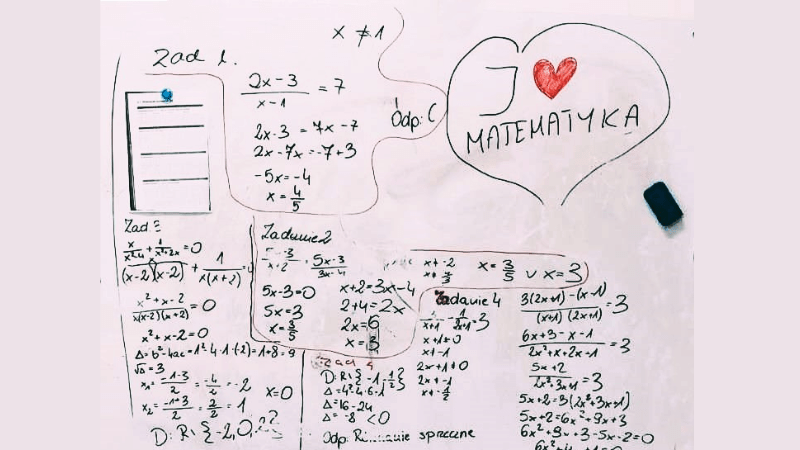 x ≠ 1
Zad 1.
2x-3 / x-1 = 7
2x-3 = 7x-7
2x-7x = -7+3
-5x = -4
x = 4/5
Odp: C
I ❤ MATEMATYKA
Zad 3
x/x²-4 + 1/x²+2x = 0
x/(x-2)(x-2) + 1/x(x+2) = 0
x²+x-2 / x(x-2)(x+2) = 0
x²+x-2=0
Δ=b²-4ac=1²-4·1·(-2)=1+8=9
√Δ=3
x₁ = -1-3/2 = -4/2 = -2
x₂ = -1+3/2 = 2/2 = 1
x=0
D: R\{-2,0,2}
Zadanie 2
5x-3/x+2 = 5x-3/3x-4
5x-3=0
5x=3
x=3/5
x+2=3x-4
2+4=2x
2x=6
x=3
x≠-2
x≠4/3
x = 3/5 ∨ x=3
Zadanie 4
3/x+1 - 1/2x+1 = 3
x+1≠0
x≠-1
2x+1≠0
2x≠-1
x≠-1/2
3(2x+1)-(x-1) / (x+1)(2x+1) = 3
6x+3-x-1 / 2x²+x+2x+1 = 3
5x+2 / 2x²+3x+1 = 3
5x+2=3(2x²+3x+1)
5x+2=6x²+9x+3
6x²+9x+3-5x-2=0
6x²+4x+1=0
Zad 4
D: R\{-1,-1/2}
Δ=4²-4·6·1
Δ=16-24
Δ=-8 <0
Odp: Równanie sprzeczne